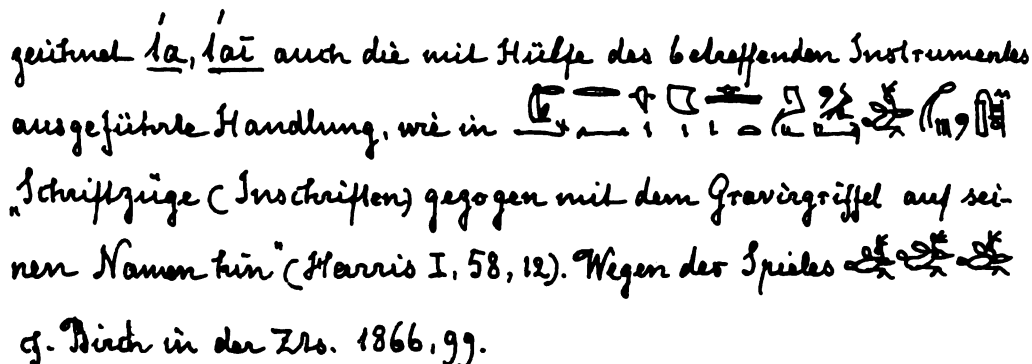 zeichnet śa, śaī auch die mit Hülfe des betreffenden Instrumentes
ausgeführte Handlung, wie in
„Schriftzüge (Inschriften) gezogen mit dem Gravirgriffel auf sei-
nen Namen hin“ (Harris I, 58, 12). Wegen des Spieles
cf. Birch in der Zts. 1866, 99.